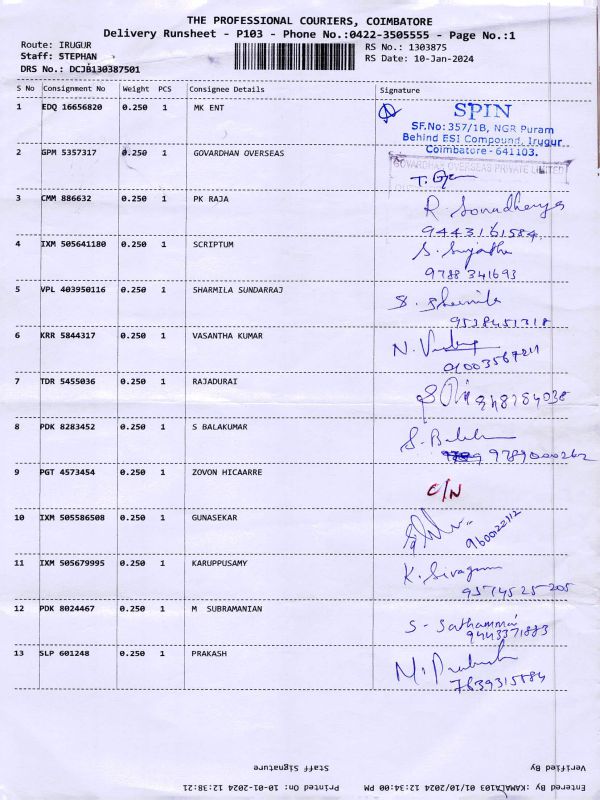 THE PROFESSIONAL COURIERS, COIMBATORE
Delivery Runsheet - P103 - Phone No.:0422-3505555 - Page No.:1
Route: IRUGUR RS No.: 1303875
Staff: STEPHAN RS Date: 10-Jan-2024
DRS No.: DCJB130387501
S No Consignment No Weight PCS Consignee Details Signature
1 EDQ 16656820 0.250 1 MK ENT
SPIN
SF.No: 357/1B, NGR Puram
Behind ESI Compound, Irugur
Coimbatore - 641103.
2 GPM 5357317 0.250 1 GOVARDHAN OVERSEAS
GOVARDHAN OVERSEAS PRIVATE LIMITED
3 CMM 886632 0.250 1 PK RAJA
9443161584
4 IXM 505641180 0.250 1 SCRIPTUM
9788 341693
5 VPL 403950116 0.250 1 SHARMILA SUNDARRAJ
6 KRR 5844317 0.250 1 VASANTHA KUMAR
7 TDR 5455036 0.250 1 RAJADURAI
8 PDK 8283452 0.250 1 S BALAKUMAR
9789000262
9 PGT 4573454 0.250 1 ZOVON HICAARRE C/N
10 IXM 505586508 0.250 1 GUNASEKAR
9600122112
11 IXM 505679995 0.250 1 KARUPPUSAMY
12 PDK 8024467 0.250 1 M SUBRAMANIAN
13 SLP 601248 0.250 1 PRAKASH
Verified By Staff Signature
Entered By :KAMALA103 01/10/2024 12:34:00 PM Printed On: 10-01-2024 12:38:21